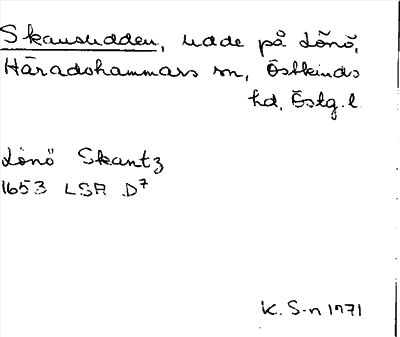 Skansudden, udde på Lönö,
Häradshammars sn, Östkinds
hd, Östg. l.
Lönö Skantz
1653 LSA D7
K. S-n 1971